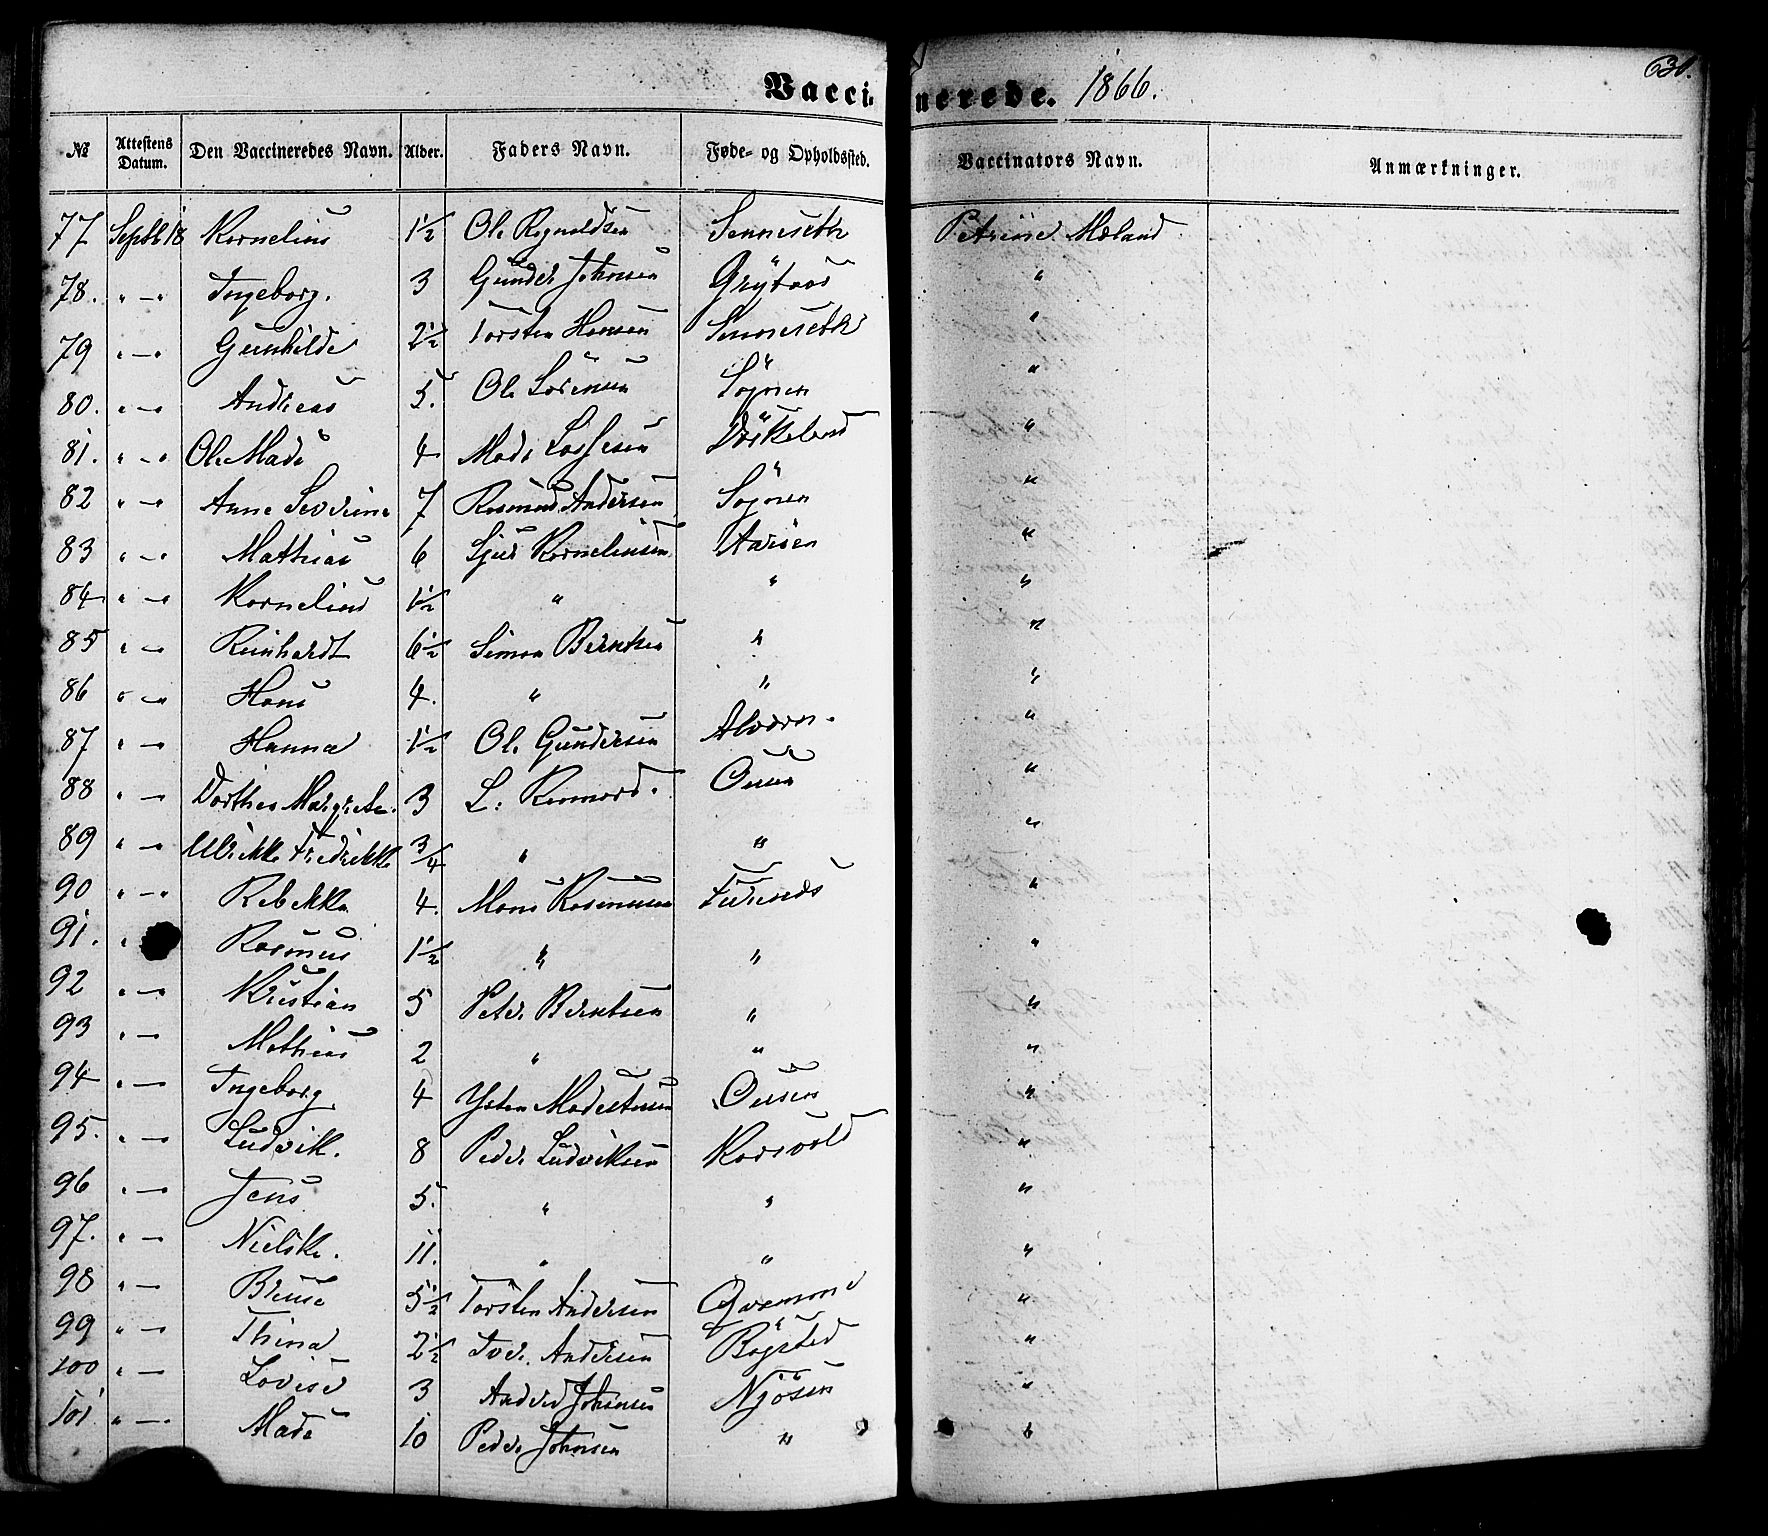 Vaccinerede. 1866. 631.
№ Attestens Datum. Den Vaccineredes Navn. Alder. Faders Navn. Føde- og Opholdssted. Vaccinators Navn. Anmærkninger.
77 Septbr 18 Kornelius 1½ Ole Reynoldsen Senneseth Petrine Mæland
78. " — " Ingeborg. 3 Gunder Johnsen Grytaas "
79 " — " Gunhilde 2½ Torsten Hansen Senneseth "
80. " — " Andreas 5. Ole Sörensen Sögnen "
81. " — " Ole Mads 4 Mads Lassesen Döskeland "
82 " — " Anne Severine 7 Rasmus Andersen Sögnen "
83 " — " Mathias 6 Sjur Korneliusen Aaröen "
84 " — " Kornelius 1½ " " "
85 " — Reinhardt 6½ Simon Berntsen " "
86 " — Hans 4. " " "
87 " — Hanna 1½ Ole Gundersen Alværen. "
88 " — Dorthea Margrete. 3 L. Ousen "
89 " — Ulrikke Fredrikke 3/4 " " "
90 " — " Rebekka 4. Mons Rasmusen "
91. " Rasmus 1½ " " "
92 " — Kristian 5 Peder Berntsen " "
93 " — Mathias 2 " " "
94 " — Ingeborg 4 Ysten Modestusen Ousen "
95. " — Ludvik. 8 Peder Ludviksen Korsvold "
96 " — Jens 5. " " "
97. " — Nielske. 11. " " "
98 " — Bruse 5½ Torsten Andersen "
99 " — Thina 2½ Iver Andersen Bögsted "
100 " — Lovise 3 Anders Johnsen Njösen "
101. " — Mads 10 Peder Johnsen " "